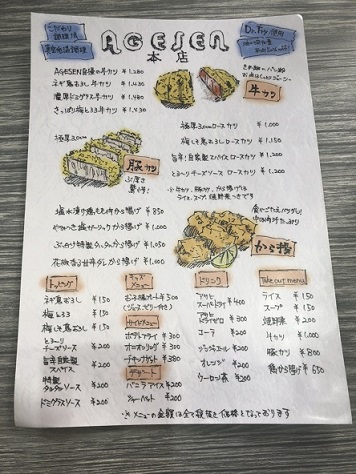 こだわり
Dr.Fry使用
AGESEN
本店
AGESEN自慢の牛カツ ¥1,280
ネギ塩おろし牛カツ ¥1,430
濃厚デミグラス牛カツ ¥1,480
さっぱり梅とろろ牛カツ ¥1,430
牛カツ
極厚3.0cmロースカツ
極厚3.0cmロースカツ ¥1,000
梅しそおろしロースカツ ¥1,150
旨辛!自家製スパイスロースカツ ¥1,200
とろ〜りチーズソースロースカツ ¥1,200
豚カツ
ライス、スープ
塩水漬け鶏もも肉から揚げ ¥850
やみつき塩ガーリックから揚げ ¥1,000
から揚げ ¥1,050
から揚げ ¥1,000
から揚
トッピング
ネギ塩おろし ¥150
梅とろろ ¥150
梅しそおろし ¥150
とろ〜り
チーズソース ¥200
旨辛自家製
スパイス ¥200
特製
タルタルソース ¥200
デミグラスソース ¥200
キッズ
メニュー
¥500
サイドメニュー
ポテトフライ ¥300
オニオンリング ¥300
チキンナゲット ¥380
デザート
バニラアイス ¥200
ヨーグルト ¥200
ドリンク
アサヒ
スーパードライ ¥400
アサヒ
ドライゼロ ¥300
コーラ ¥200
ジンジャエール ¥200
オレンジ ¥200
ウーロン茶 ¥200
Take out menu
ライス ¥150
スープ ¥150
¥200
牛カツ ¥1,000
豚カツ ¥800
鶏から揚げ ¥650
※メニューの金額は全て税抜き価格となっております